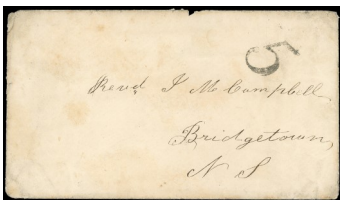 5
Revd J M Campbell
Bridgetown
N S